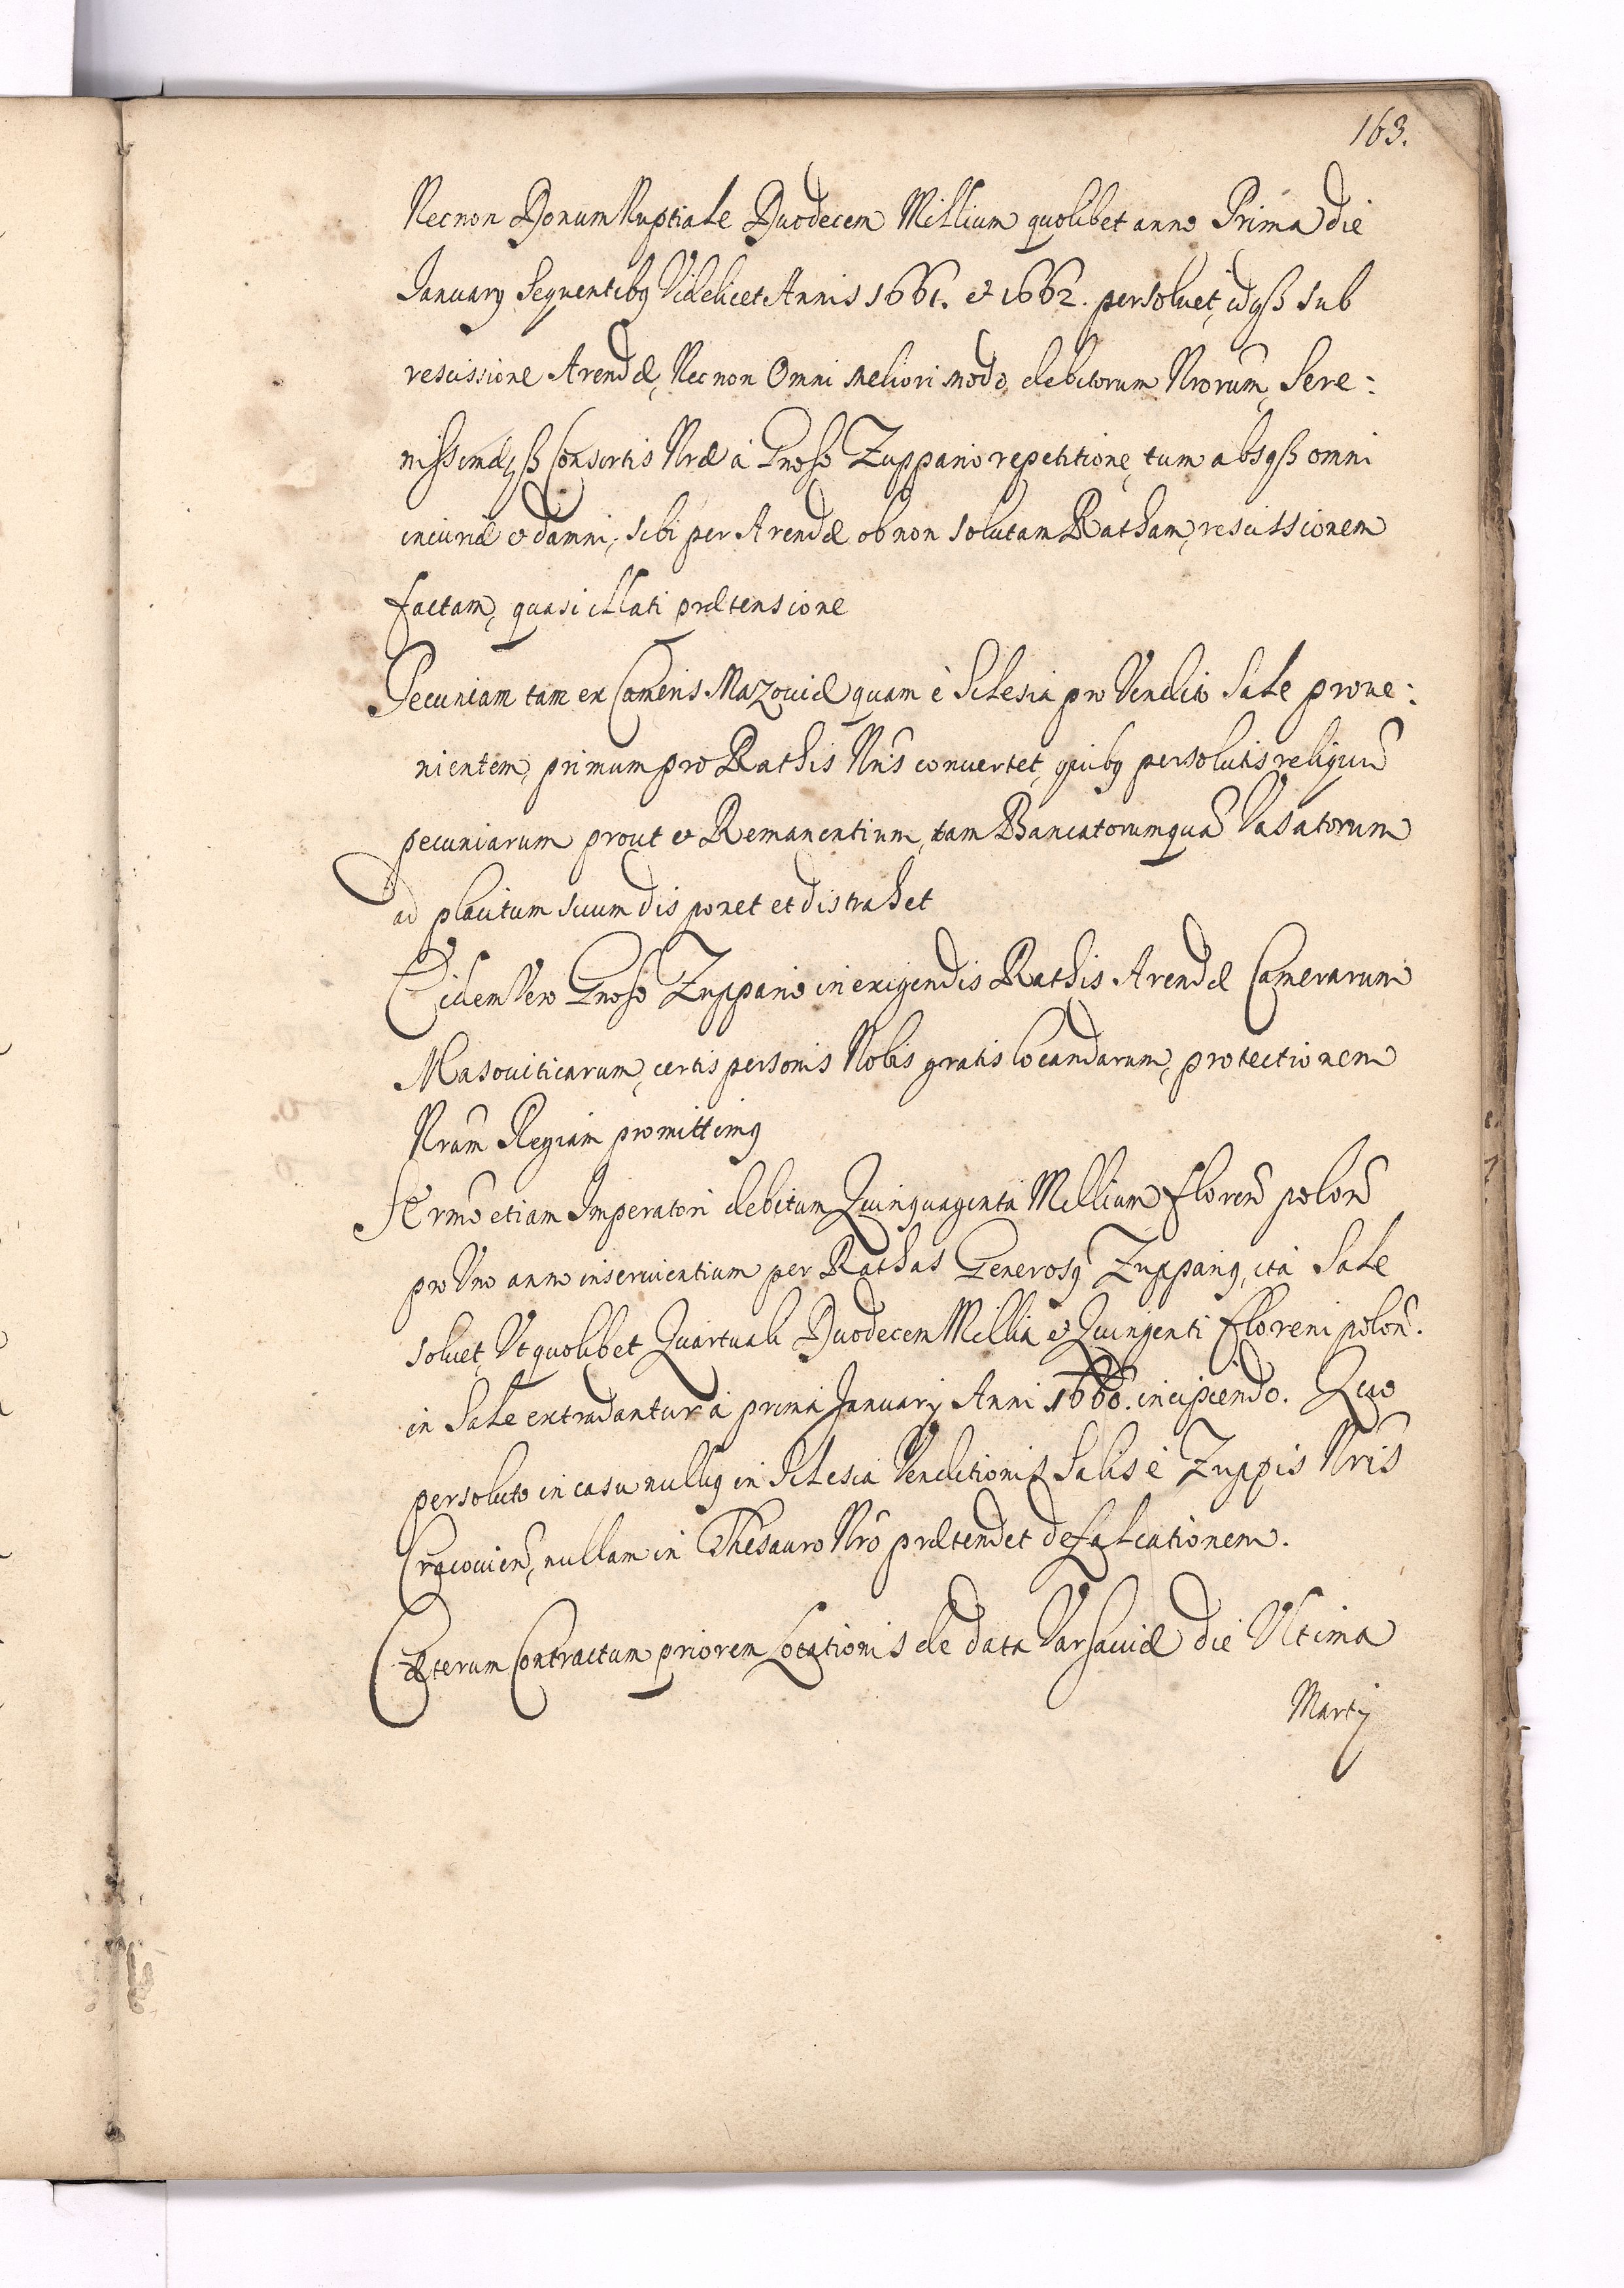 163.
Necnon Donum Nuptiale Duodecem Millium quolibet anno Prima die
January Sequentibꝰ Videlicet Annis 1661. et 1662. persoluet, idqꝫ sub
rescissione Arendæ, Nec non Omni meliori modo debitorum Nrorum̃, Sere:
nissimæqꝫ Consortis Nræ à Gnoso Zuppario repetitione, tum absqꝫ omni
iniuriæ et damni, sibi per Arendæ ob non solutam Ratham, rescissionem
factam, quasi illati prætensione
Pecuniam tam ex Cameris Mazouiæ quam è Silesia pro Vendito Sale proue:
nientem, primum pro Rathis Nris̃ conuertet, quibꝰ persolutis reliquũ
pecuniarum prout et Remanentium, tam Bancatorum quã Vasatorum
ad placitum suum disponet et distrahet
Eidem Vero Gnoso Zuppario in exigendis Rathis Arendæ Camerarum
Masouiticarum, certis personis Nobis gratis locandarum, protectionem
Nram̃ Regiam promittimꝰ
Serm̃o etiam Imperatori debitum Quinquaginta Millium floren̄ polon̄
pro Vno anno inseruientium per Rathas Generosꝰ Zuppariꝰ, ità Sale
soluet, Vt quolibet Quartuali Duodecem Millia et Quingenti floreni polon̄.
in Sale extradantur à prima January Anni 1660. incipiendo. Quo
persoluto in casu nullꝰ in Silesia Venditionis Salis è Zuppis Nris̃
Cracouien̄, nullam in Thesauro Nrõ prætendet defalcationem.
Cæterum Contractum priorem Locationis de data Varsauiæ die Vltima
Martij